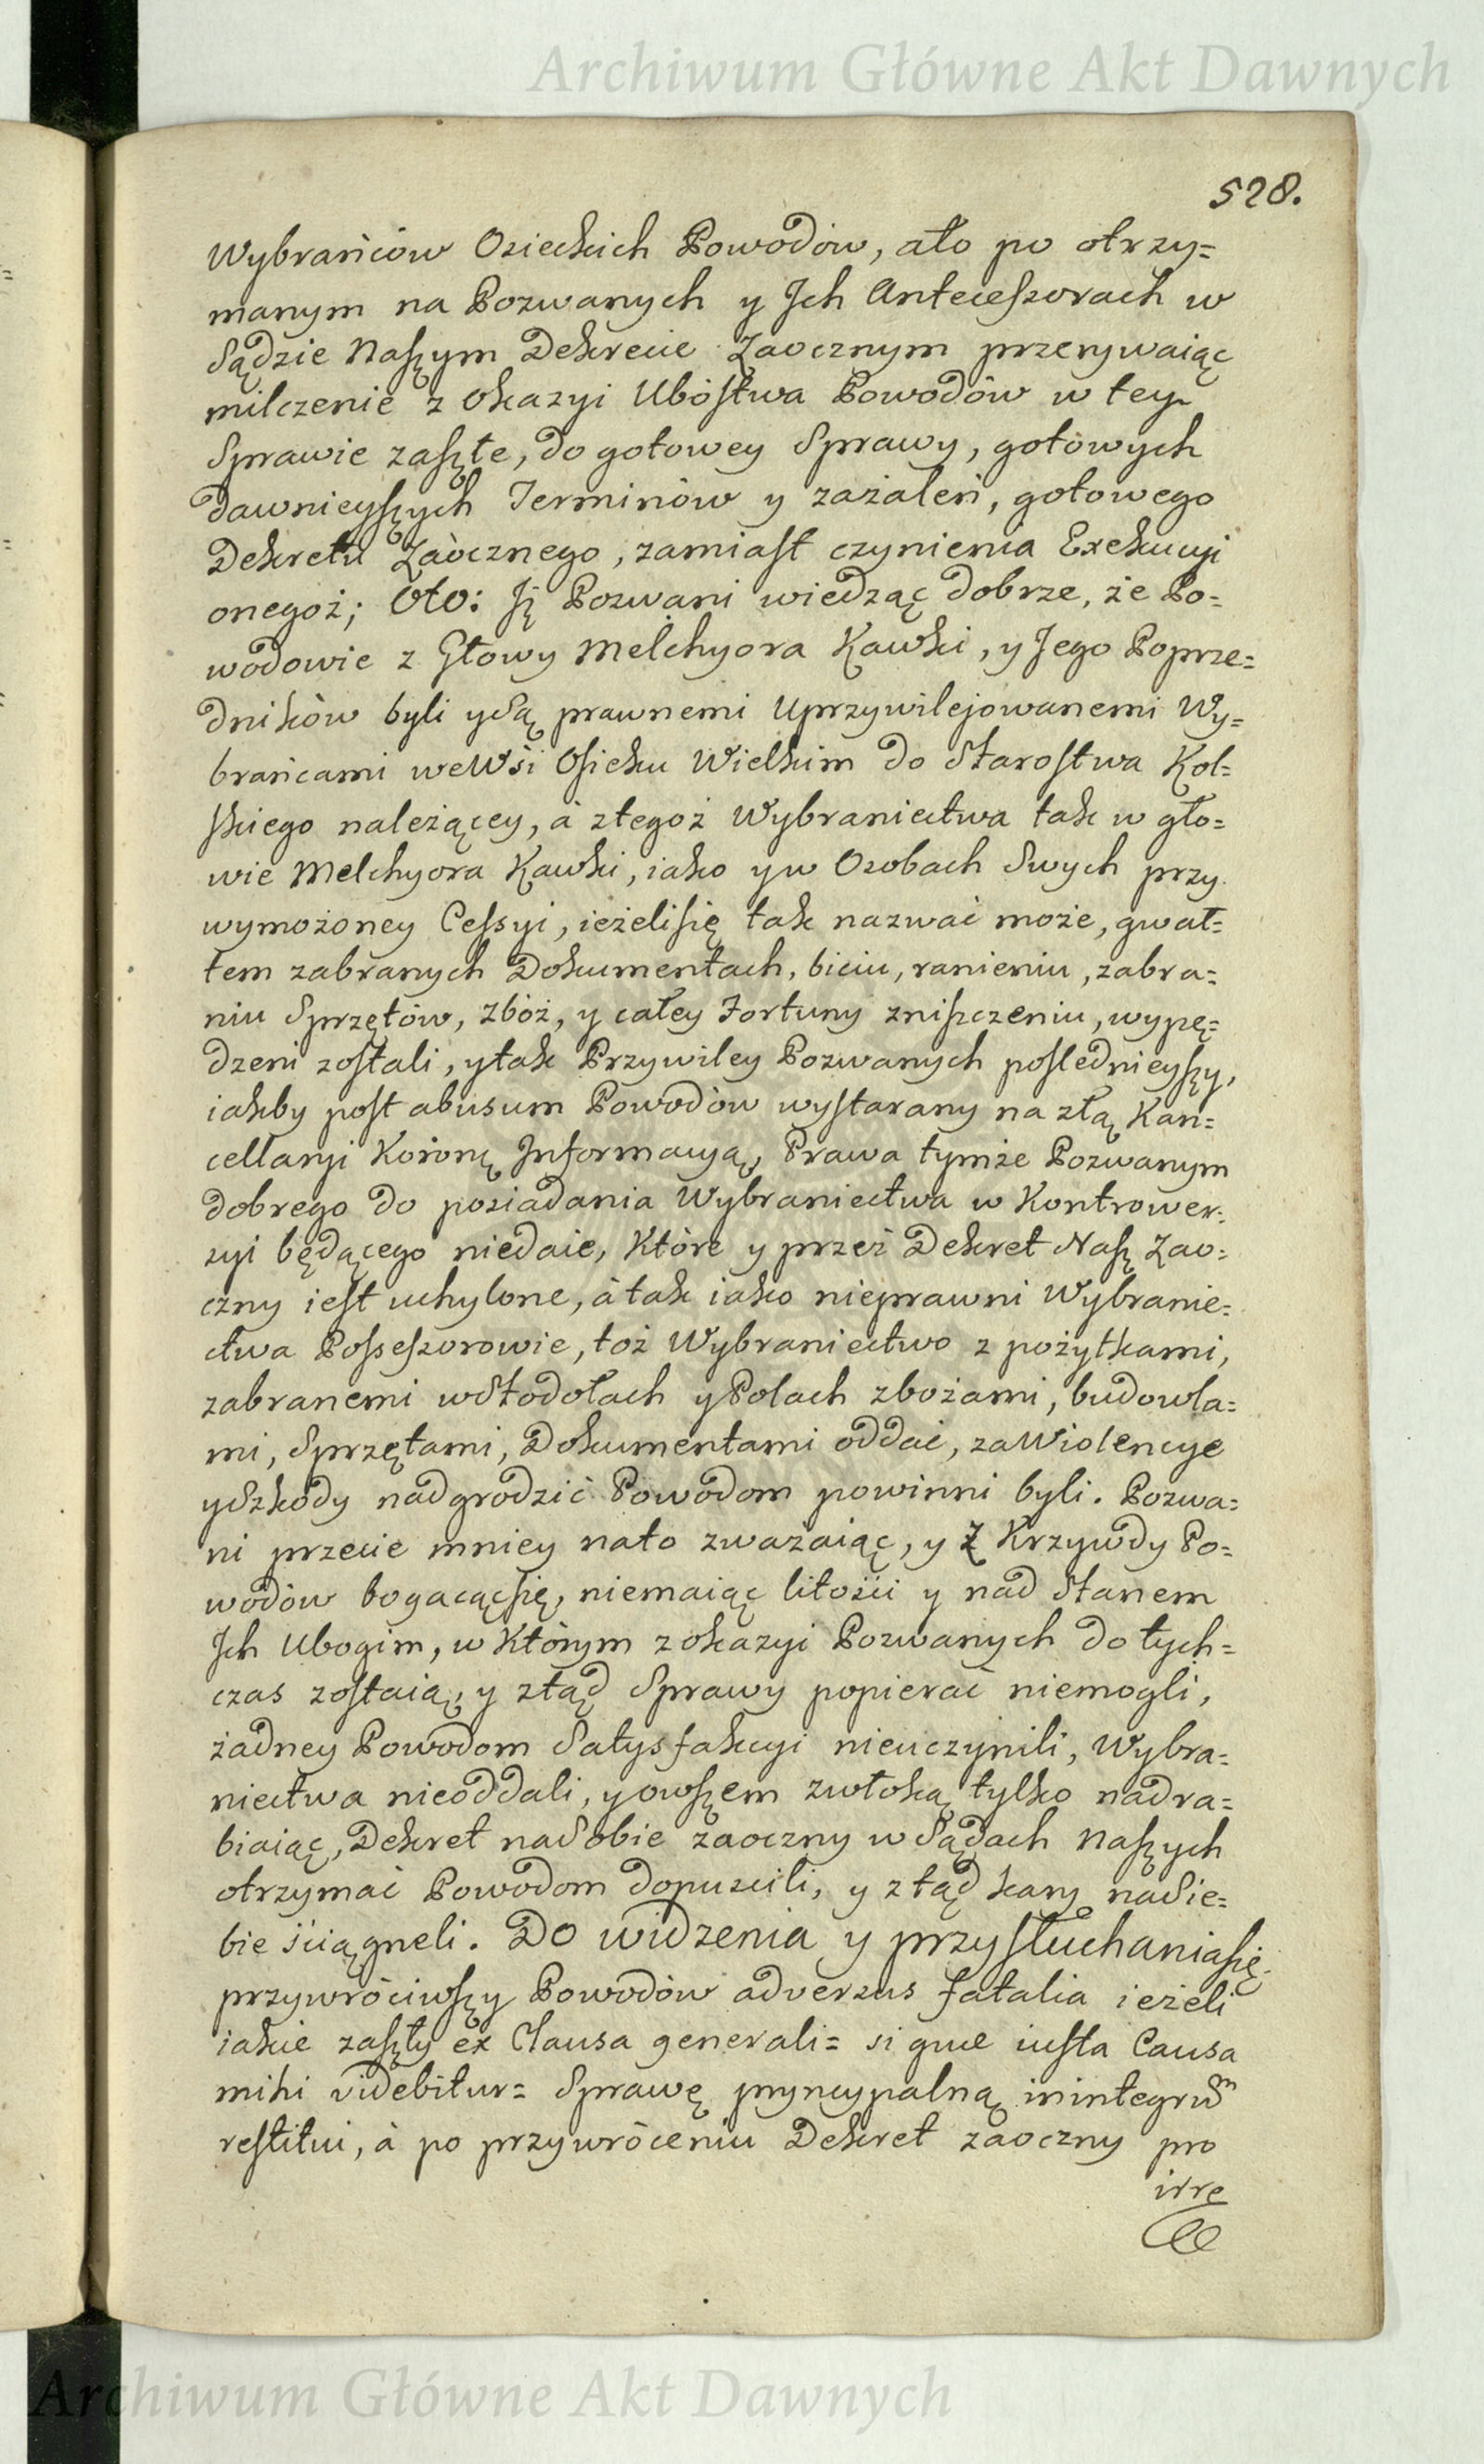 Archiwum Główne Akt Dawnych
528.
Wybrańców Osieckich Powodów, ato po otrzy=
manym na Pozwanych y Jch Antecessorach w
Sądzie Naszym Dekrecie Zaocznym przerywaiąc
milczenie z Okazyi Ubóstwa Powodów w tey
Sprawie zaszłe, do gotowey Sprawy, gotowych
dawnieyszych Terminów y zażaleń, gotowego
Dekretu Zaocznego, zamiast czynienia Exekucyi
onegoż; Oto: Jż Pozwani wiedząc dobrze, że Po=
wodowie z Głowy Melchyora Kawki, y Jego Poprze=
dników byli ySą prawnemi Uprzywilejowanemi Wy=
brańcami weWsi Osieku Wielkim do Starostwa Kol=
skiego należącey, à ztegoż Wybraniectwa tak w gło=
wie Melchyora Kawki, iako yw Osobach Swych przy
wymożoney Cessyi, ieżelisię tak nazwać może, gwał=
tem zabranych Dokumentach, biciu, ranieniu, zabra=
niu Sprzętów, zbóż, y całey Fortuny zniszczeniu, wypę=
dzeni zostali, ytak Przywiley Pozwanych poslednieyszy,
iakby post abusum Powodów wystarany na złą Kan=
cellaryi Koronę Jnformacyą, Prawa tymże Pozwanym
dobrego do posiadania Wybraniectwa w Kontrower=
syi będącego niedaie, Które y przez Dekret Nasz Zao=
czny iest uchylone, àtak iako nieprawni Wybranie=
ctwa Possessorowie, toż Wybraniectwo z pożytkami,
zabranemi wStodołach yPolach zbożami, budowla=
mi, Sprzętami, Dokumentami oddać, zaWiolencye
ySzkody nadgrodzić Powodom powinni byli. Pozwa=
ni przecie mniey nato zważaiąc, y Z Krzywdy Po=
wodów bogacącsię, niemaiąc litości y nad Stanem
Jch Ubogim, w Którym zokazyi Pozwanych do tych=
czas zostaią, y ztąd Sprawy popierać niemogli,
żadney Powodom Satysfakcyi nieuczynili, Wybra=
niectwa nieoddali, yowszem zwłoką tylko nadra=
biaiąc, Dekret naSobie zaoczny wSądach Naszych
otrzymać Powodom dopuscili, y ztąd kary naSie=
bie sciągneli. Do widzenia y przysłuchaniasię
przywróciwszy Powodów adversus fatalia ieżeli
iakie zaszły ex Clausa generali= si quæ iusta Causa
mihi videbitur= Sprawę pryncypalną inintegrum
restitui, à po przywróceniu Dekret zaoczny pro
irre
Archiwum Główne Akt Dawnych